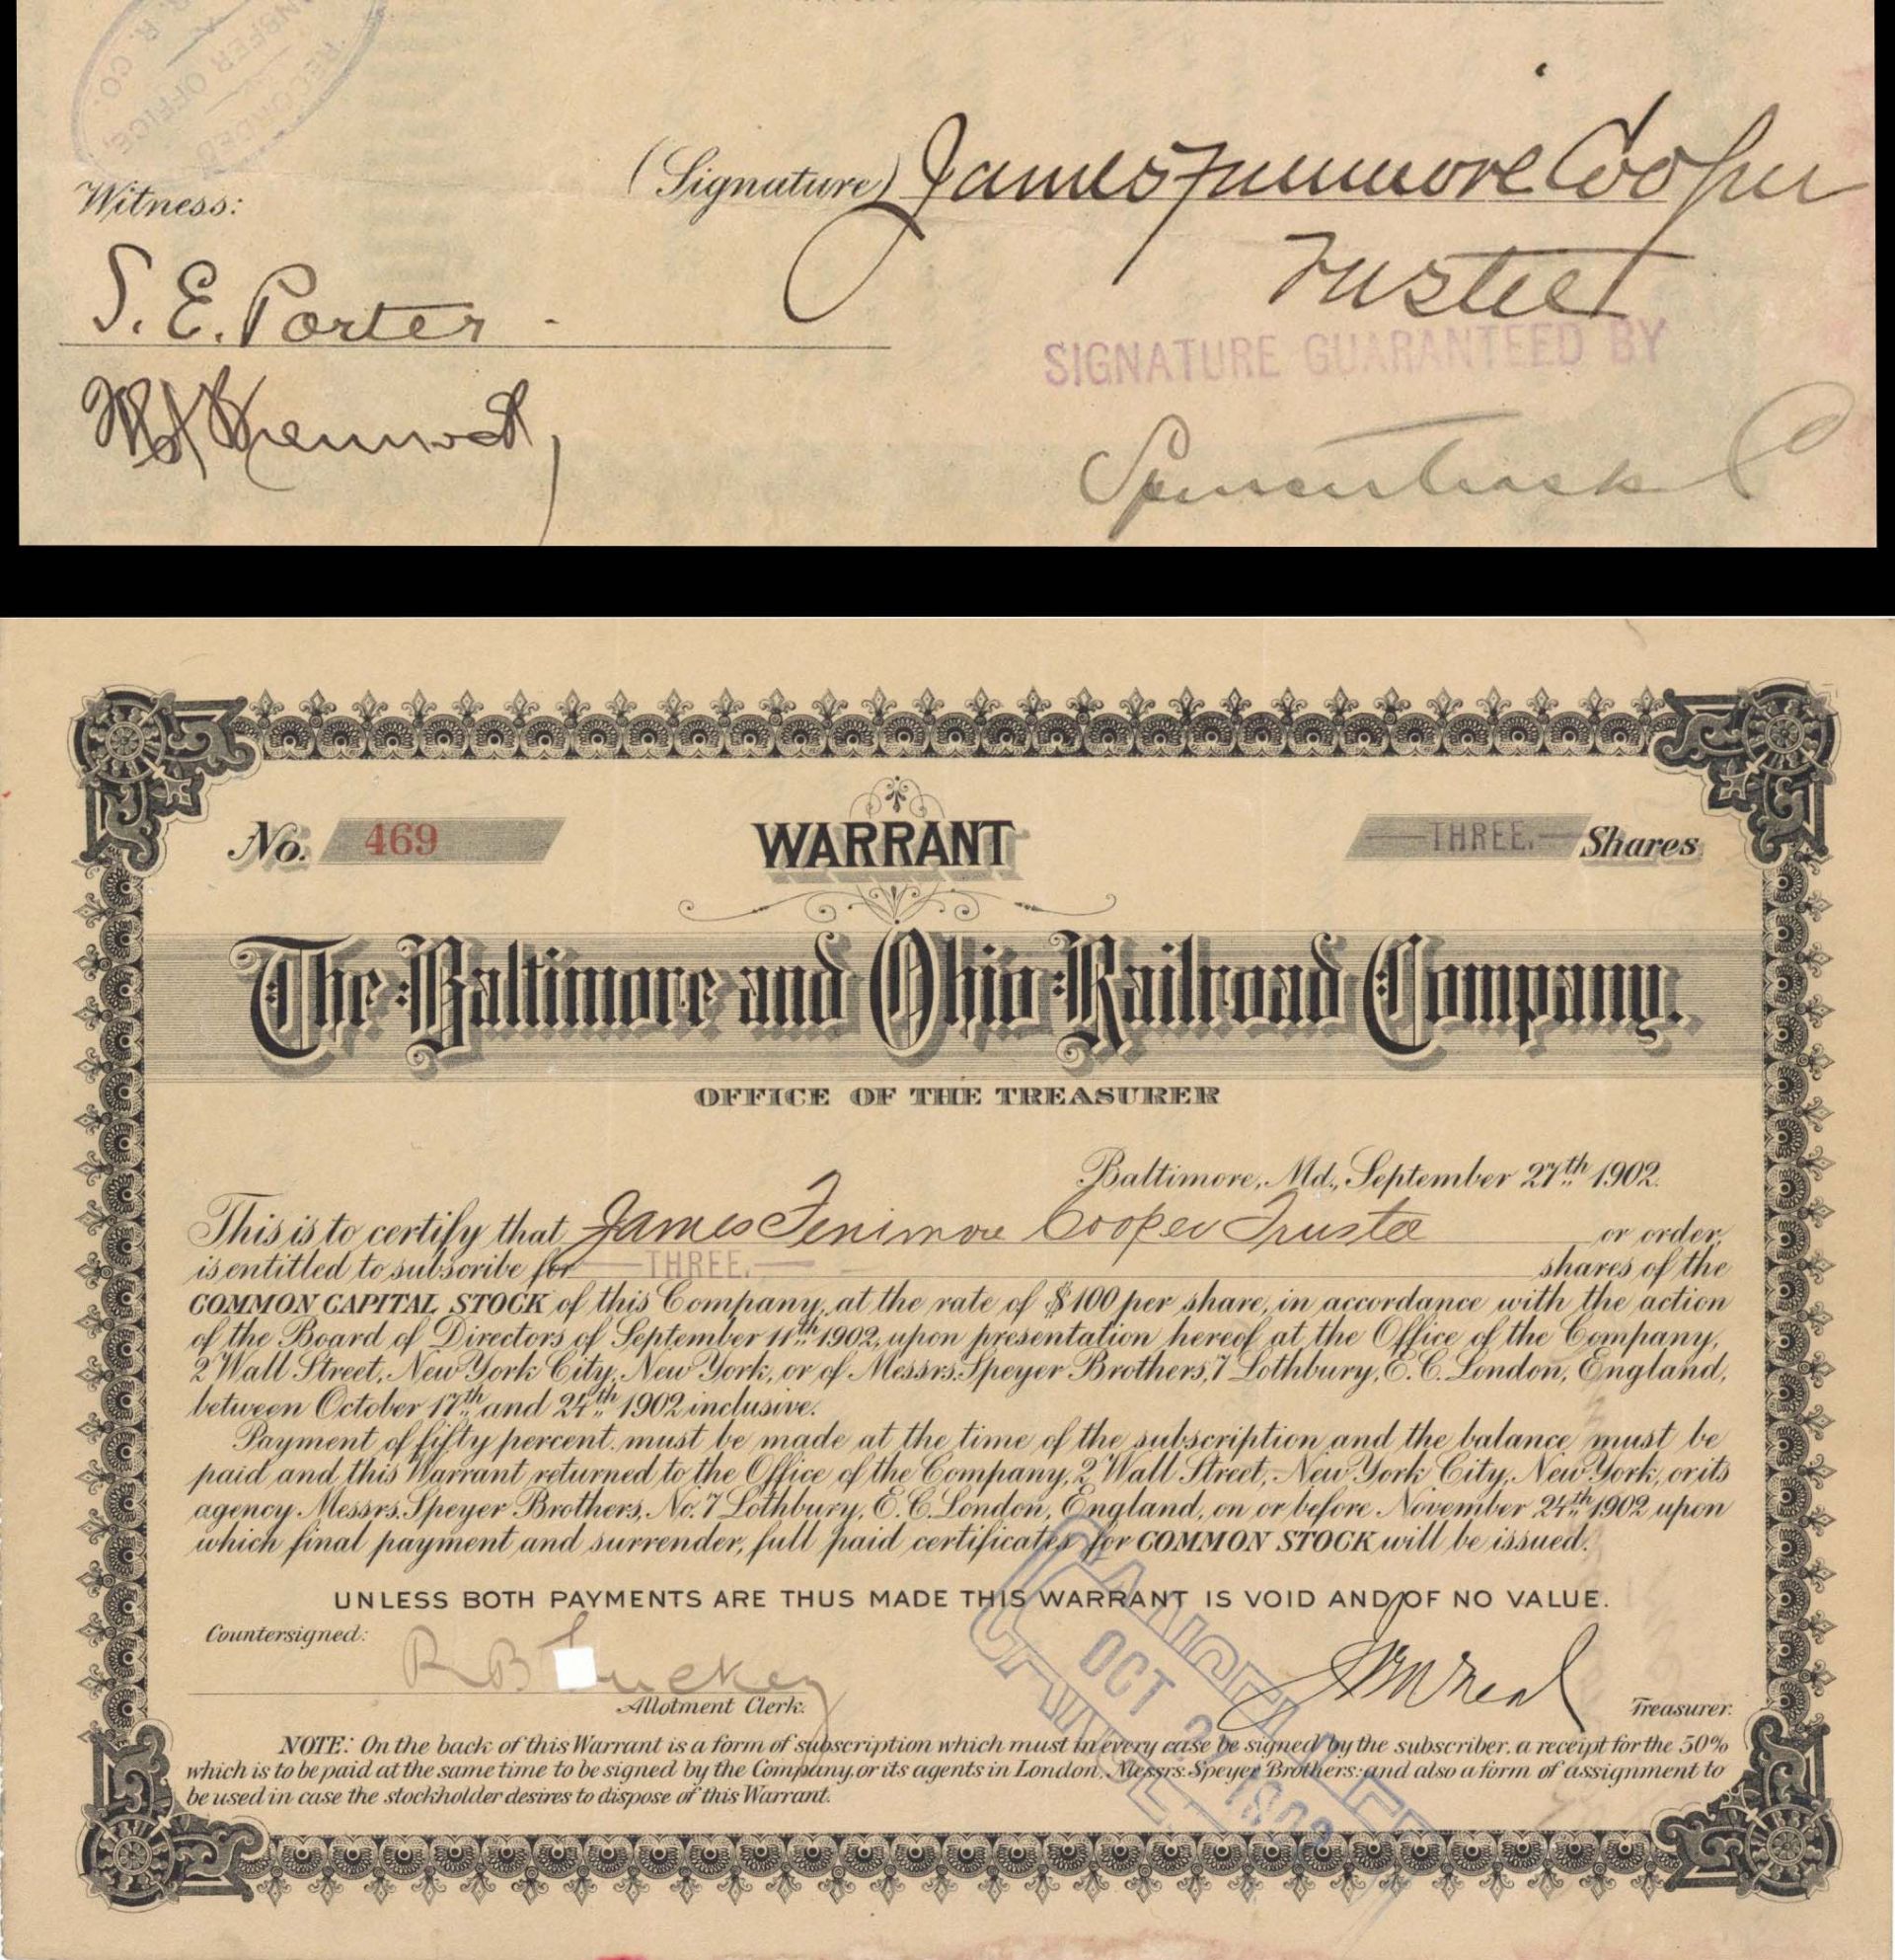 R. CO.
TRANSFER OFFICE,
RECORDED
Witness:
(Signature) James Fenimore Cooper
Trustee
S. E. Porter
SIGNATURE GUARANTEED BY
Spencer Trask
No. 469
WARRANT
THREE. Shares
The Baltimore and Ohio Railroad Company.
OFFICE OF THE TREASURER
Baltimore, Md., September 27th 1902.
This is to certify that James Fenimore Cooper Trustee or order,
is entitled to subscribe for THREE. shares of the
COMMON CAPITAL STOCK of this Company, at the rate of $100 per share, in accordance with the action
of the Board of Directors of September 11th 1902, upon presentation hereof at the Office of the Company,
2 Wall Street, New York City, New York, or of Messrs. Speyer Brothers, 7 Lothbury, E. C. London, England,
between October 17th and 24th 1902 inclusive.
Payment of fifty percent. must be made at the time of the subscription and the balance must be
paid and this Warrant returned to the Office of the Company, 2 Wall Street, New York City, New York, or its
agency Messrs. Speyer Brothers, No. 7 Lothbury, E. C. London, England, on or before November 24th 1902 upon
which final payment and surrender, full paid certificates for COMMON STOCK will be issued.
UNLESS BOTH PAYMENTS ARE THUS MADE THIS WARRANT IS VOID AND OF NO VALUE.
Countersigned:
R B Luckey
Allotment Clerk.
Treasurer.
CANCELLED
OCT 2 1902
NOTE: On the back of this Warrant is a form of subscription which must in every case be signed by the subscriber. a receipt for the 50%
which is to be paid at the same time to be signed by the Company. or its agents in London. Messrs: Speyer Brothers: and also a form of assignment to
be used in case the stockholder desires to dispose of this Warrant.